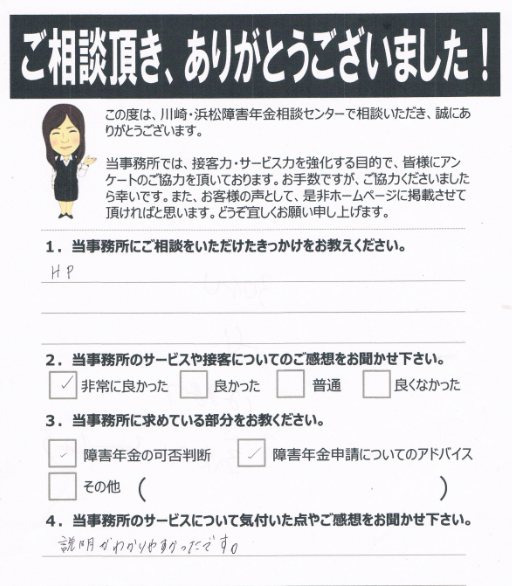 ご相談頂き、ありがとうございました！
この度は、川崎・浜松障害年金相談センターで相談いただき、誠にあ
りがとうございます。
当事務所では、接客力・サービス力を強化する目的で、皆様にアン
ケートのご協力を頂いております。お手数ですが、ご協力くださいました
ら幸いです。また、お客様の声として、是非ホームページに掲載させて
頂ければと思います。どうぞ宜しくお願い申し上げます。
1．当事務所にご相談をいただけたきっかけをお教えください。
HP
2．当事務所のサービスや接客についてのご感想をお聞かせ下さい。
✓ 非常に良かった □ 良かった □ 普通 □ 良くなかった
3．当事務所に求めている部分をお教ください。
✓ 障害年金の可否判断 ✓ 障害年金申請についてのアドバイス
□ その他 （ ）
4．当事務所のサービスについて気付いた点やご感想をお聞かせ下さい。
説明がわかりやすかったです。